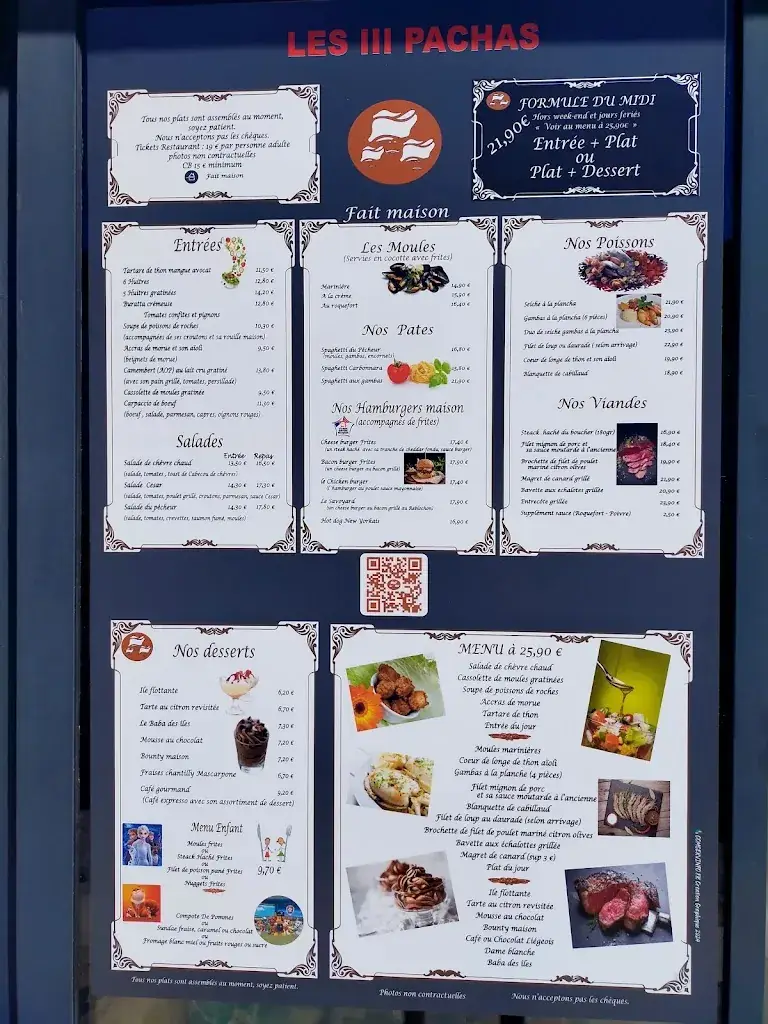 LES III PACHAS
Tous nos plats sont assemblés au moment,
soyez patient.
Nous n'acceptons pas les chèques.
Tickets Restaurant : 19 € par personne adulte
photos non contractuelles
CB 15 € minimum
Fait maison
FORMULE DU MIDI
Hors week-end et jours feriés
« Voir au menu à 25,90€ »
21,90€
Entrée + Plat
ou
Plat + Dessert
Fait maison
Entrées
Tartare de thon mangue avocat 11,50 €
6 Huitres 12,80 €
5 Huitres gratinées 14,20 €
Buratta crémeuse 12,80 €
Tomates confites et pignons
Soupe de poissons de roches 10,30 €
(accompagnées de ses croutons et sa rouille maison)
Accras de morue et son aïoli 9,50 €
(beignets de morue)
Camembert (AOP) au lait cru gratiné 13,80 €
(avec son pain grillé, tomates, persillade)
Cassolette de moules gratinée 9,50 €
Carpaccio de boeuf 11,30 €
(boeuf , salade, parmesan, capres, oignons rouges)
Salades
Entrée Repas
Salade de chèvre chaud 13,50 € 16,50 €
(salade, tomates , toast de Cabecou de chèvres)
Salade Cesar 14,30 € 17,30 €
(salade, tomates, poulet grillé, croutons, parmesan, sauce Cesar)
Salade du pêcheur 14,30 € 17,80 €
(salade, tomates, crevettes, saumon fumé, moules)
Les Moules
(Servies en cocotte avec frites)
Marinière 14,90 €
A la crème 15,90 €
Au roquefort 16,40 €
Nos Pates
Spaghetti du Pêcheur 16,80 €
(moules, gambas, encornets)
Spaghetti Carbonnara 15,80 €
Spaghetti aux gambas 21,90 €
Nos Hamburgers maison
(accompagnés de frites)
Cheese burger Frites 17,40 €
(un steak haché avec sa tranche de cheddar fondu, sauce burger)
Bacon burger Frites 17,90 €
(un cheese burger au bacon grillé)
le Chicken burger 17,40 €
(l'hamburger au poulet sauce mayonnaise)
Le Savoyard 17,90 €
(un cheese burger au bacon grillé au Reblochon)
Hot dog New Yorkais 16,90 €
Nos Poissons
Seiche à la plancha 21,90 €
Gambas à la plancha (6 pièces) 20,90 €
Duo de seiche gambas à la plancha 23,90 €
Filet de loup ou daurade ( selon arrivage) 22,90 €
Coeur de longe de thon et son aïoli 19,90 €
Blanquette de cabillaud 18,90 €
Nos Viandes
Steack haché du boucher (180gr) 16,90 €
Filet mignon de porc et 18,40 €
sa sauce moutarde à l'ancienne
Brochette de filet de poulet 19,90 €
mariné citron olives
Magret de canard grillé 21,90 €
Bavette aux échalotes grillée 20,90 €
Entrecôte grillée 23,90 €
Supplément sauce (Roquefort - Poivre) 2,50 €
Nos desserts
Ile flottante 6,20 €
Tarte au citron revisitée 6,70 €
Le Baba des îles 7,30 €
Mousse au chocolat 7,20 €
Bounty maison 7,20 €
Fraises chantilly Mascarpone 6,70 €
Café gourmand 9,20 €
(Café expresso avec son assortiment de dessert)
Menu Enfant
Moules frites
ou
Steack Haché Frites
ou
Filet de poisson pané Frites
ou
Nuggets Frites
9,70 €
Compote De Pommes
ou
Sundae fraise, caramel ou chocolat
ou
Fromage blanc miel ou fruits rouges ou sucre
MENU à 25,90 €
Salade de chèvre chaud
Cassolette de moules gratinées
Soupe de poissons de roches
Accras de morue
Tartare de thon
Entrée du jour
Moules marinières
Coeur de longe de thon aïoli
Gambas à la planche (4 pièces)
Filet mignon de porc
et sa sauce moutarde à l'ancienne
Blanquette de cabillaud
Filet de loup au daurade (selon arrivage)
Brochette de filet de poulet mariné citron olives
Bavette aux échalottes grillée
Magret de canard (sup 3 €)
Plat du jour
Ile flottante
Tarte au citron revisitée
Mousse au chocolat
Bounty maison
Café ou Chocolat Liégeois
Dame blanche
Baba des îles
Tous nos plats sont assemblés au moment, soyez patient.
Photos non contractuelles
Nous n'acceptons pas les chèques.